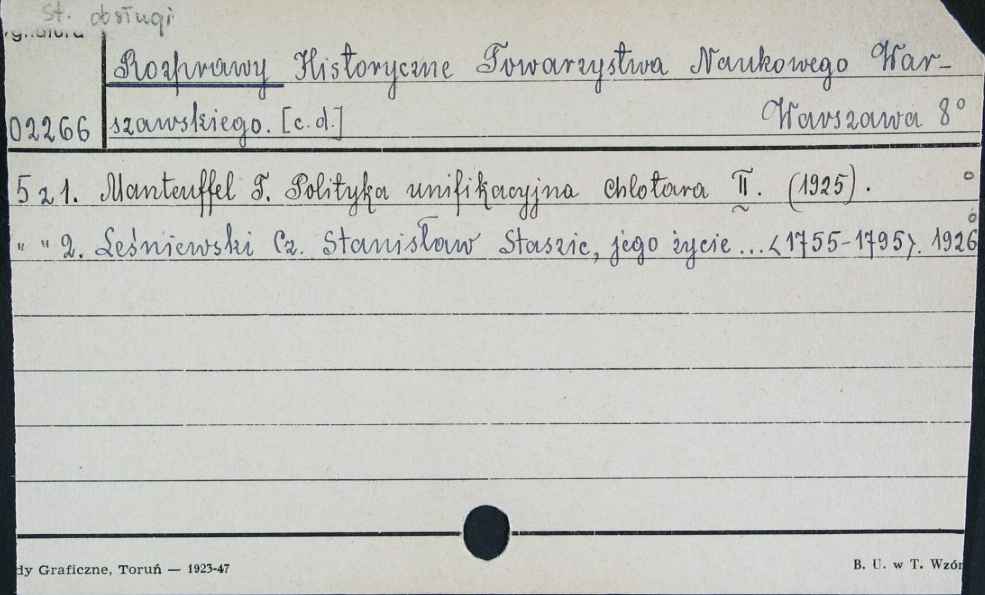 st. obsługi
ygnatura
Rozprawy Historyczne Towarzystwa Naukowego War-
02266 szawskiego. [c.d.] Warszawa 8°
5 z 1. Manteuffel T. Polityka unifikacyjna Chlotara II. (1925).
" " 2. Leśniewski Cz. Stanisław Staszic, jego życie ... <1755-1795>. 1926
dy Graficzne, Toruń — 1923-47
B. U. w T. Wzór